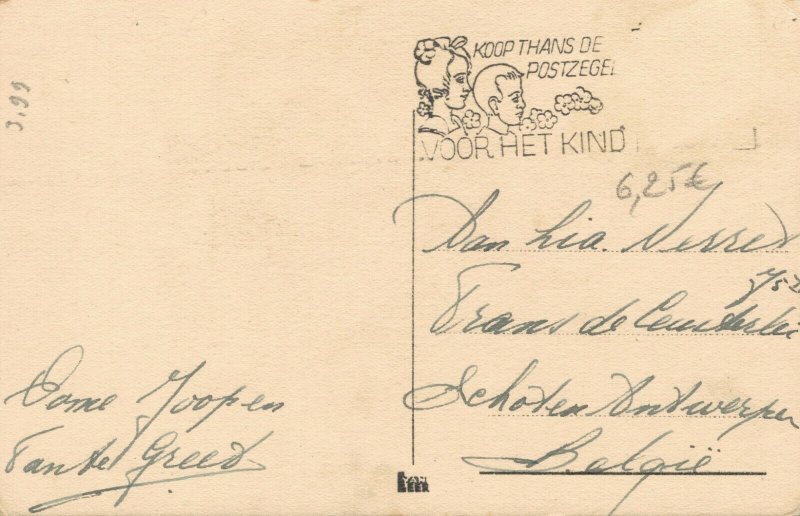 KOOP THANS DE
POSTZEGEL
VOOR HET KIND
3,99
6,25€
Aan Lia. Nerre
Frans de Ceus
Schoten Antwerpen
België
Oome Joop en
Tante Greet
VAN